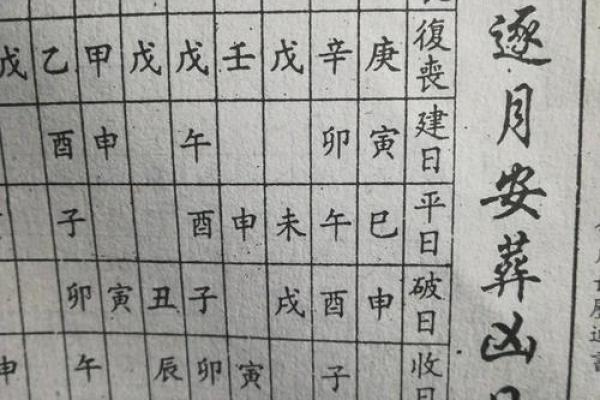 逐月安葬凶
復喪 建日 平日 破日 收日
庚 寅 巳 申
辛 卯 午 酉 子
戊 未 戌
壬 申 寅
戊 午 酉 子 卯
戊 丑 辰
甲 申 寅
乙 酉 子 卯 午
戊 申